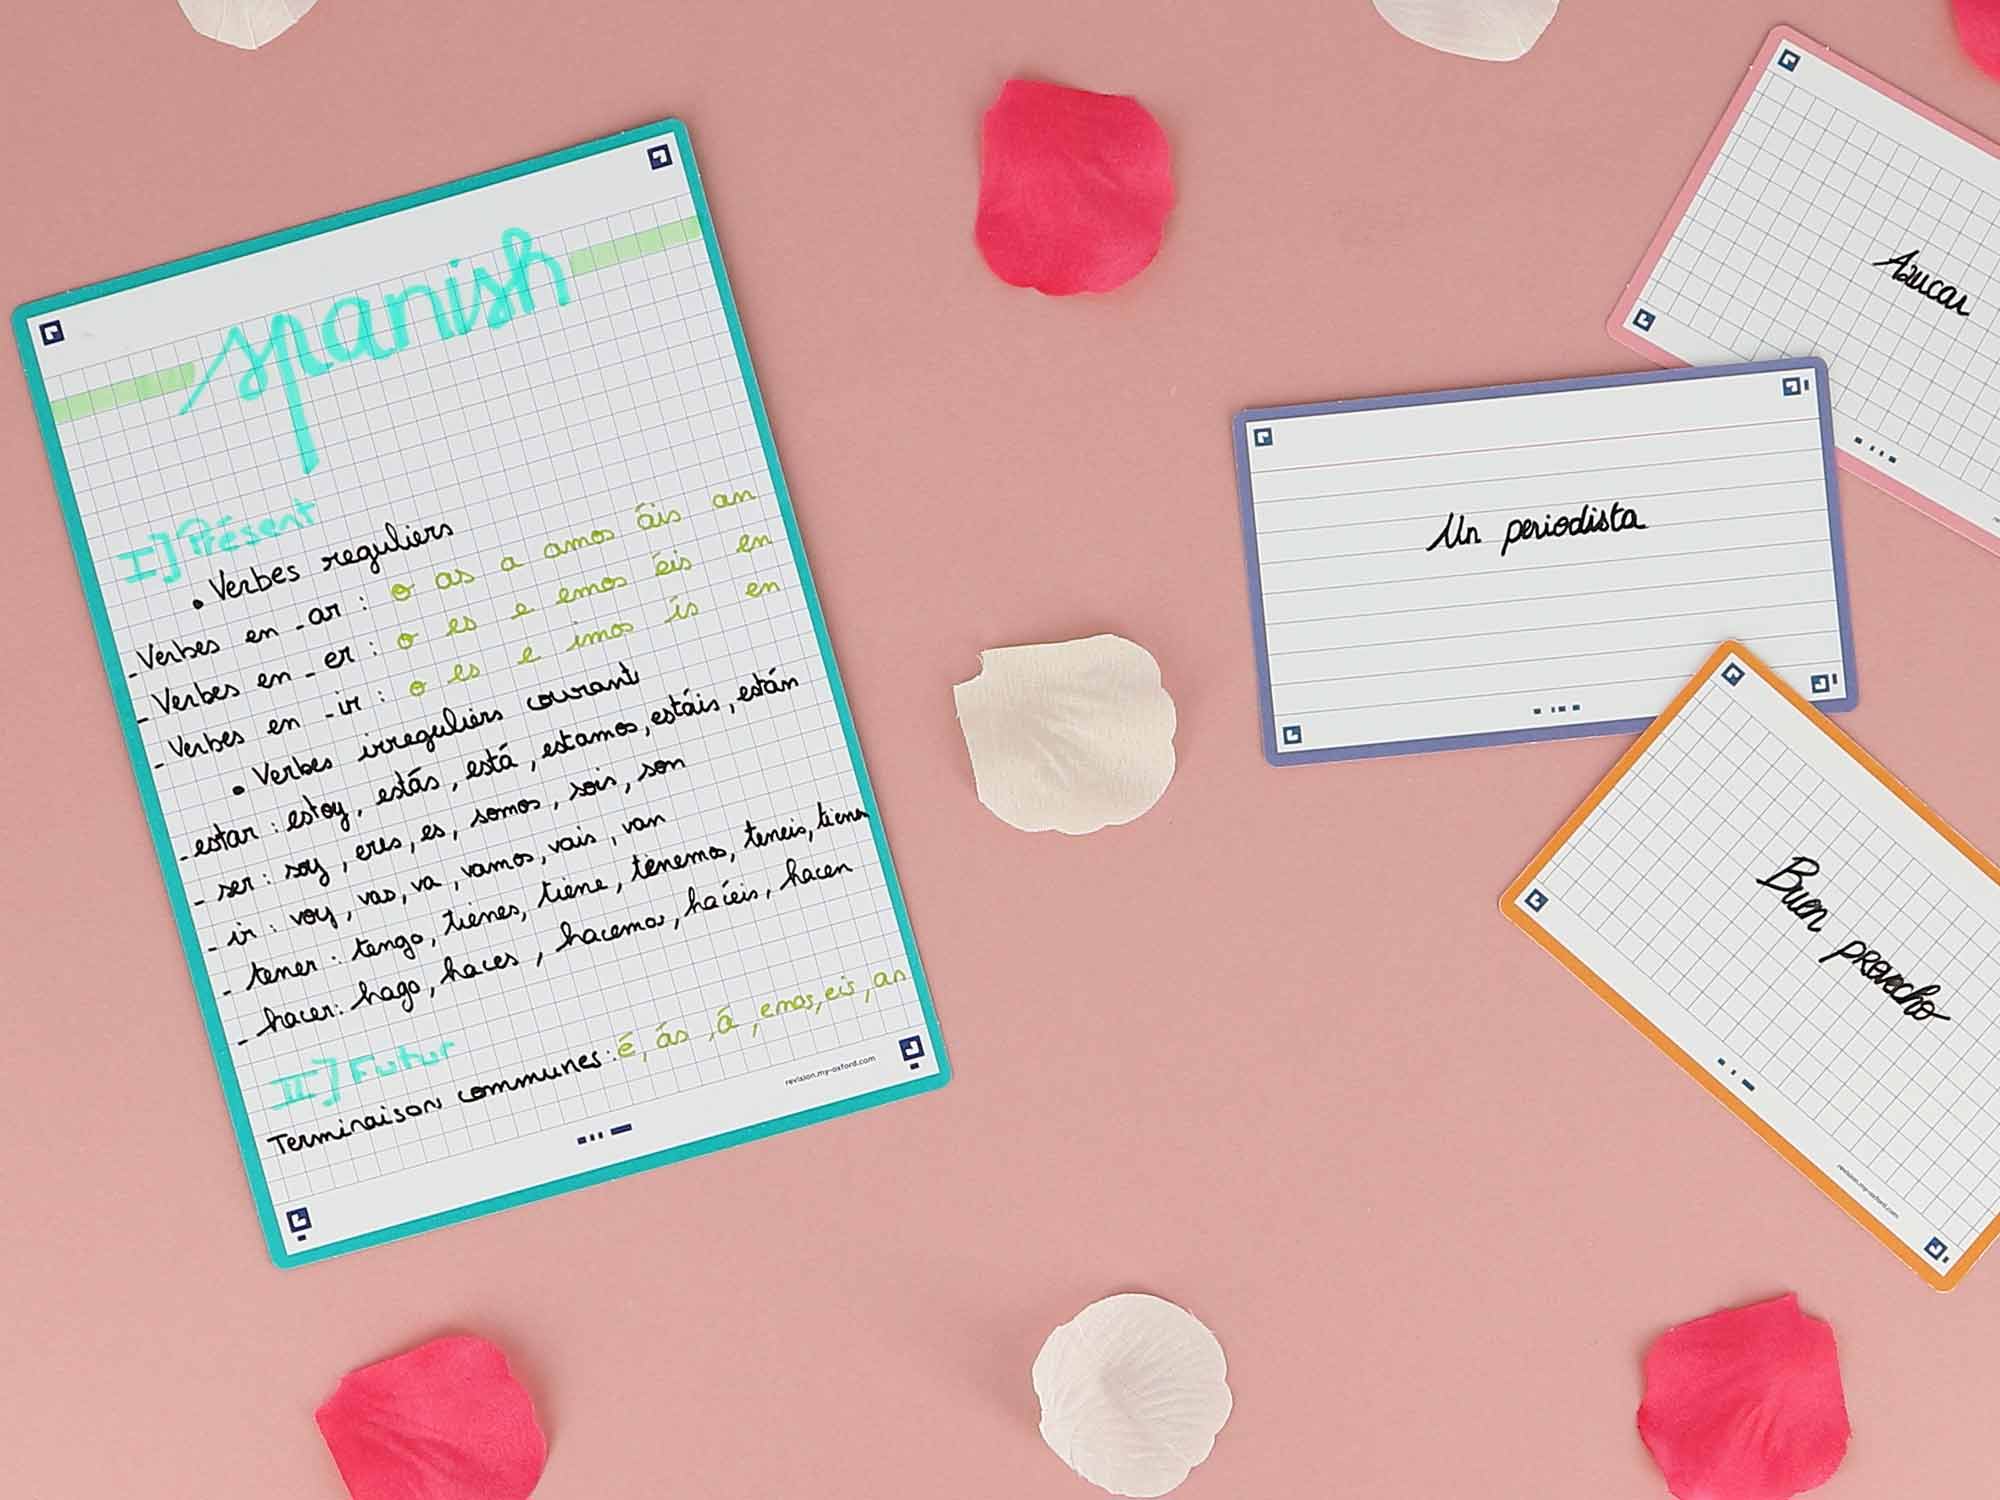 Spanish
I] Présent
• Verbes reguliers
- Verbes en -ar : o as a amos áis an
- Verbes en -er : o es e emos éis en
- Verbes en -ir : o es e imos ís en
• Verbes irreguliers courants
- estar : estoy, estás, está, estamos, estáis, están
- ser : soy, eres, es, somos, sois, son
- ir : voy, vas, va, vamos, vais, van
- tener : tengo, tienes, tiene, tenemos, teneis, tienen
- hacer : hago, haces, hacemos, haceis, hacen
II] Futur
Terminaisons communes : é, ás, á, emos, eis, an
revision.my-oxford.com
Azucar
Un periodista
Buen provecho
revision.my-oxford.com